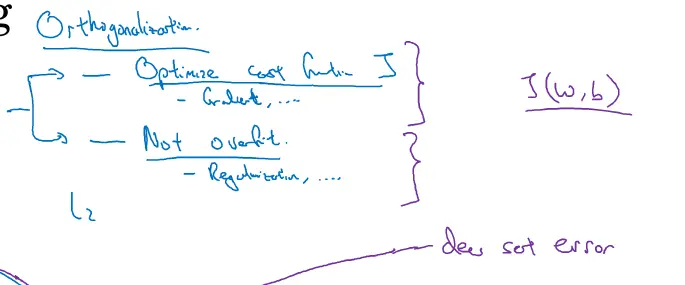 g
Orthogonalization.
— Optimize cost function J
J(w,b)
- Gradient, ....
— Not overfit.
- Regularization, ....
L2
dev set error